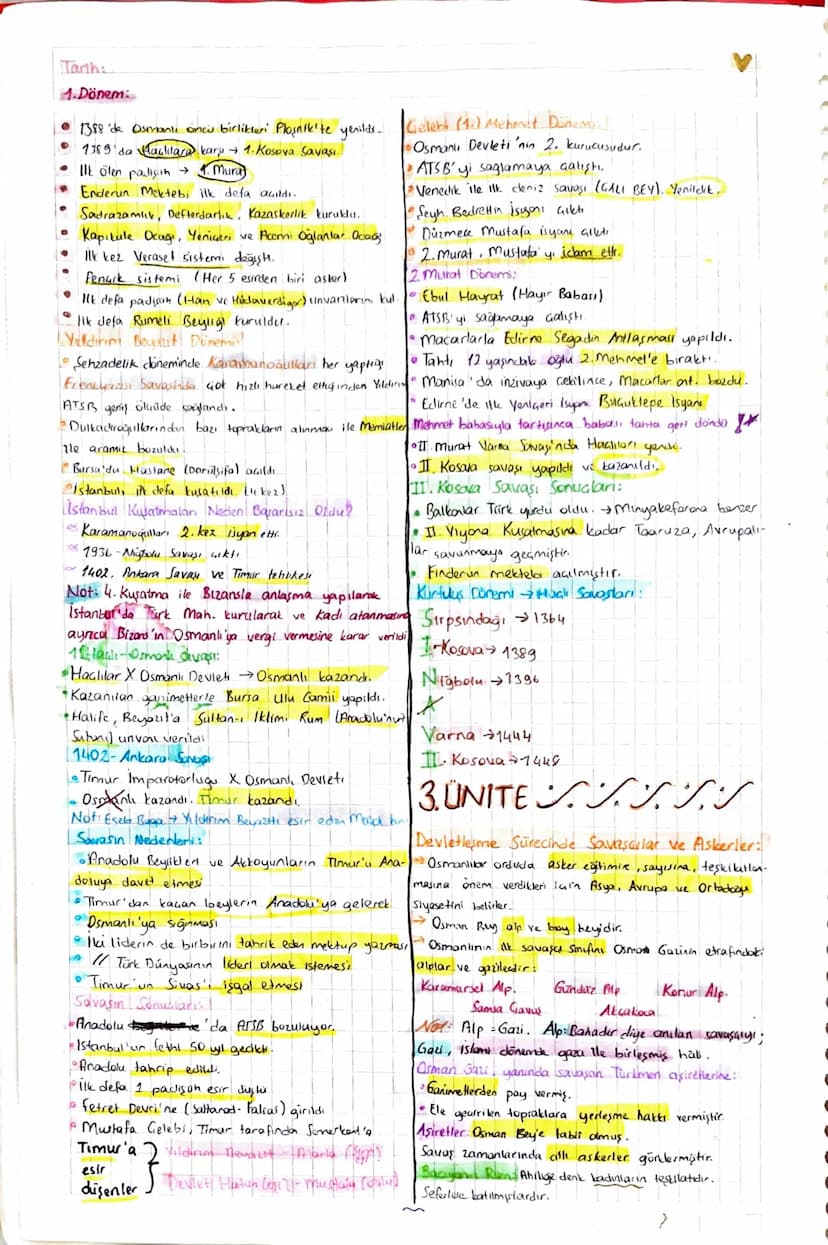 Tarih:
1.Dönem:
1388'de Osmanlı öncü birlikleri Ploşnik'te yenildi.
1389'da Haçlılara karşı → 1.Kosova Savaşı
İlk ölen padişah → 1. Murat
Enderun Mektebi ilk defa açıldı.
Sadrazamlık, Defterdarlık, Kazaskerlik kuruldu.
Kapıkule Ocağı, Yeniçeri ve Acemi Oğlanlar Ocağı
İlk kez Veraset sistemi değişti.
Pençik sistemi (Her 5 esirden biri asker)
İlk defa padişah (Han ve Hüdavendigar) unvanlarını kul.
İlk defa Rumeli Beyliği kuruldu.
Yıldırım Beyazıt Dönemi
Şehzadelik döneminde Karamanoğulları her yaptığı
Frenkyazısı Savaşında çok hızlı hareket ettiğinden Yıldırım
ATSB geniş ölçüde sağlandı.
Dulkadiroğullarından bazı toprakların alınması ile Memlüklar
ile aramız bozuldu.
Bursa'da Hastane (Darüşşifa) açıldı
İstanbul, ilk defa kuşatıldı (4 kez)
İstanbul Kuşatmaları Neden Başarısız Oldu?
Karamanoğulları 2. kez isyan etti.
1936 - Niğbolu Savaşı çıktı
1402, Ankara Savaşı ve Timur tehlikesi
Not: 4. Kuşatma ile Bizansla anlaşma yapılarak
İstanbul'da Türk Mah. kurularak ve Kadı atanmasına
ayrıca Bizans'ın Osmanlı'ya vergi vermesine karar verildi
Haçlı-Osmanlı Savaşı:
Haçlılar X Osmanlı Devleti → Osmanlı kazandı.
Kazanılan ganimetlerle Bursa Ulu Camii yapıldı.
Halife, Beyazıt'a Sultan-ı İklimi Rum (Anadolu'nun
Sultanı) unvanı verildi
1402 - Ankara Savaşı
Timur İmparatorluğu X Osmanlı Devleti
Osmanlı kazandı. Timur kazandı.
Not: Esele Buga → Yıldırım Beyazıtı esir eden
Savaşın Nedenleri:
Anadolu Beylikleri ve Akkoyunların Timur'u Ana-
doluya davet etmesi
Timur'dan kaçan beylerin Anadolu'ya gelerek
Osmanlı'ya sığınması
İki liderin de birbirini tahrik eden mektup yazması
// Türk Dünyasının lideri olmak istemesi
Timur'un Sivas'ı işgal etmesi
Savaşın Sonuçları:
Anadolu 'da ATSB bozuluyor.
İstanbul'un fethi 50 yıl gecikti.
Anadolu tahrip edildi.
İlk defa 1 padişah esir düştü
Fetret Devri'ne (Saltanat-Fatras) girildi
Mustafa Çelebi, Timur tarafından Semerkant'a
Timur'a
esir
düşenler
Yıldırım Beyazıt - Maria (eşi)
Devlet Hatun (eşi) - Mustafa (oğlu)
Çelebi (1.) Mehmet Dönemi
Osmanlı Devleti'nin 2. kurucusudur.
ATSB'yi sağlamaya çalıştı.
Venedik ile ilk deniz savaşı (ÇALI BEY). Yenildik.
Şeyh Bedrettin İsyanı çıktı
Düzmece Mustafa isyanı çıktı
2. Murat, Mustafa'yı idam ettr.
2 Murat Dönemi:
Ebul Hayrat (Hayır Babası)
ATSB'yi sağlamaya çalıştı
Macarlarla Edirne Segedin Antlaşması yapıldı.
Tahtı 12 yaşındaki oğlu 2.Mehmet'e bıraktı.
Manisa'da inzivaya çekilince, Macarlar ant. bozdu.
Edirne'de ilk Yeniçeri İsyanı Buçuktepe İsyanı
Mehmet babasıyla tartışınca babası tahta geri döndü !★
II. Murat Varna Savaşı'nda Haçlıları yendi.
II. Kosova savaşı yapıldı ve kazanıldı.
II. Kosova Savaşı Sonuçları:
Balkanlar Türk yurdu oldu. → Minyakefarona benzer
II. Viyana Kuşatmasına kadar Taaruza, Avrupalı-
lar savunmaya geçmiştir.
Enderun mektebi açılmıştır.
Kurtuluş Dönemi → Haçlı Savaşları:
Sırpsındağı → 1364
I. Kosova → 1389
Niğbolu → 1396
A
Varna → 1444
II. Kosova → 1448
3. ÜNİTE
Devletleşme Sürecinde Savaşçılar ve Askerler:
Osmanlılar orduda asker eğitimine, sayısına, teşkilatlan-
masına önem verdikleri için Asya, Avrupa ve Ortadoğu
siyasetini belirler.
Osman Bey alp ve bay beyidir.
Osmanlının ilk savaşçı sınıfını Osman Gazinin etrafındaki
alplar ve gazilerdir:
Karamürsel Alp. Gündüz Alp Konur Alp.
Samsa Çavuş Akçakoca
Not: Alp = Gazi. Alp = Bahadır diye anılan savaşçıyı;
Gazi, islami dönemde gaza ile birleşmiş hali.
Osman Gazi, yanında savaşan Türkmen aşiretlerine:
Ganimetlerden pay vermiş.
Ele geçirilen topraklara yerleşme hakkı vermiştir.
Aşiretler Osman Bey'e tabii olmuş.
Savaş zamanlarında atlı askerler göndermiştir.
Bacıyan-ı Rum: Ahiliğe denk kadınların teşkilatıdır.
Seferlere katılmışlardır.